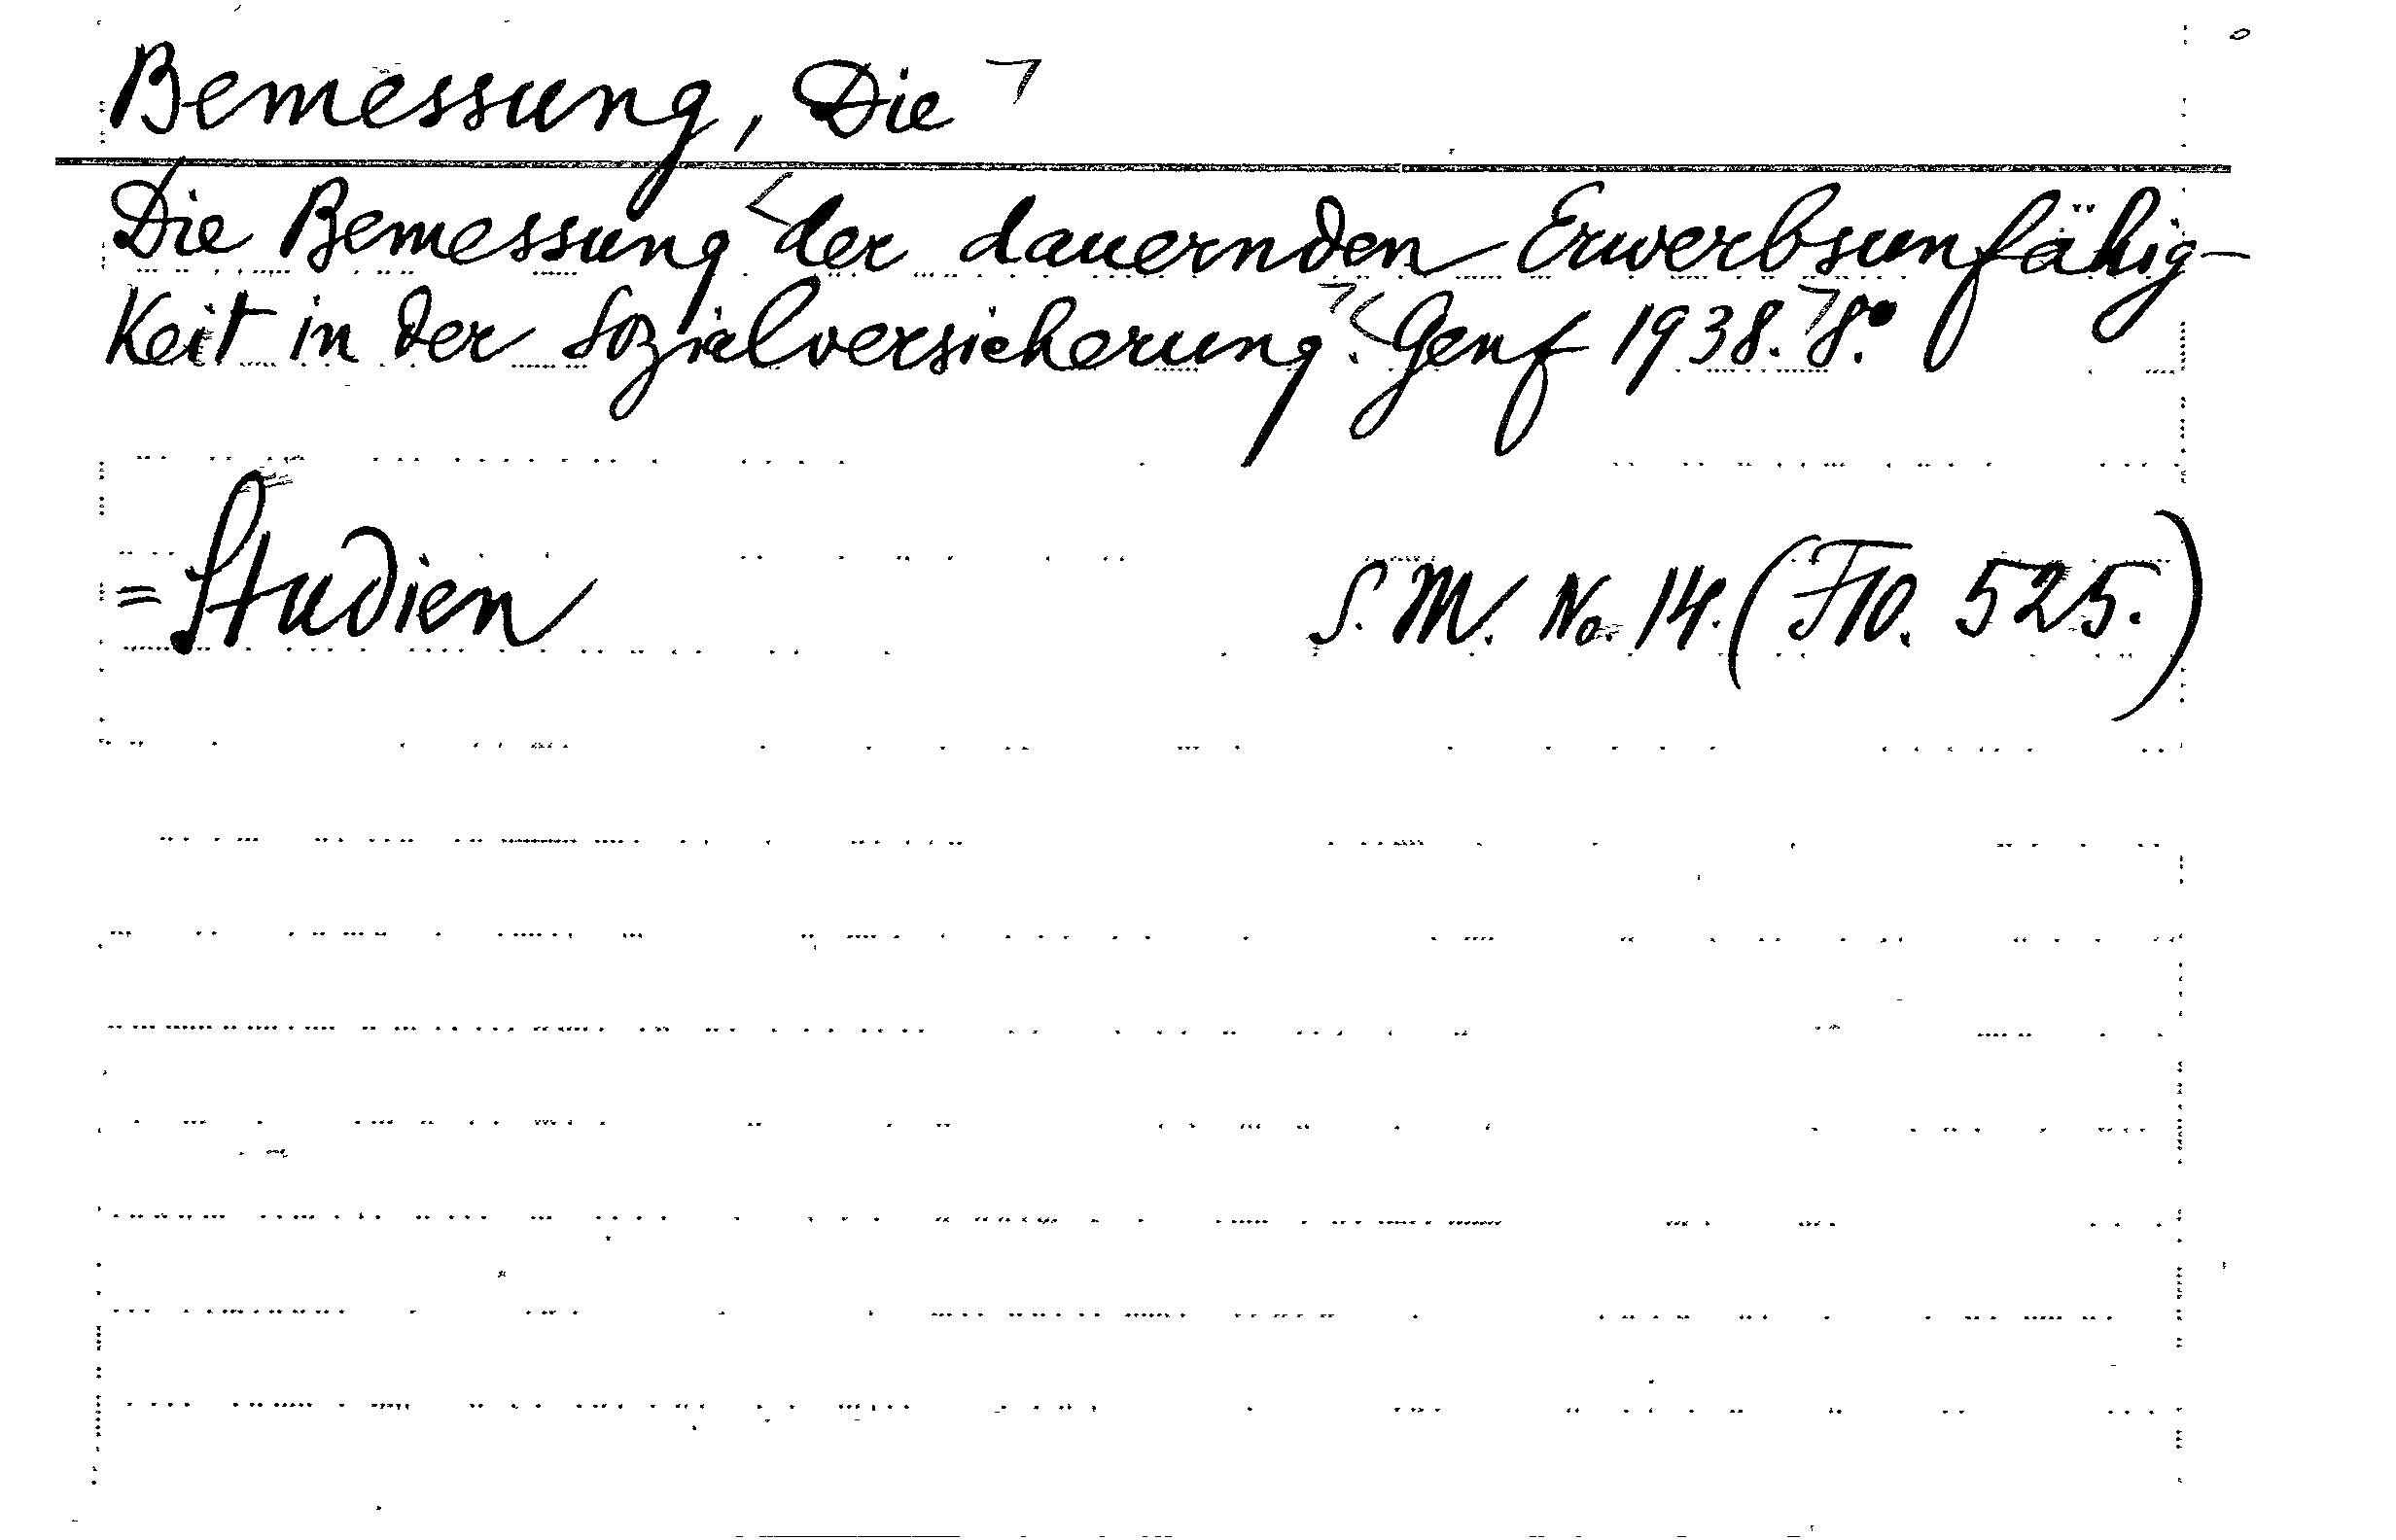 Bemessung, Die
Die Bemessung der dauernden Erwerbsunfähig-
keit in der Sozialversicherung. Genf 1938. 8°.
= Studien S. M. No. 14. (F10. 525.)